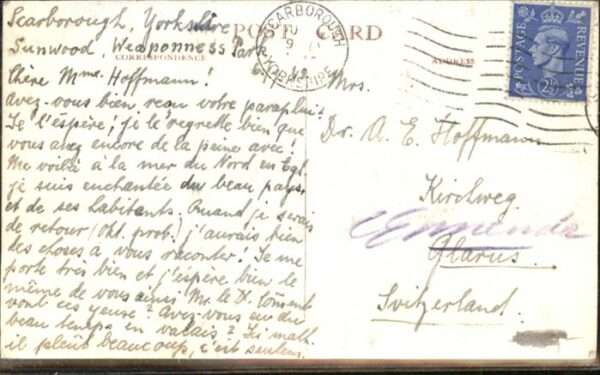 Scarborough, Yorkshire
Sunwood, Weaponness Park,
POST CARD
CORRESPONDENCE
ADDRESS
SCARBOROUGH
YORKSHIRE
POSTAGE
REVENUE
2½D
Chère Mme. Hoffmann!
Avez-vous bien reçu votre parapluie?
Je l'éspère; je le regrette bien que
vous avez encore de la peine avec!
Me voilà à la mer du Nord en Engl.
je suis enchantée du beau pays
et de ses habitants. Quand je serais
de retour (Okt. prob.) j'aurais bien
des choses à vous raconter! Je me
porte très bien et j'éspère bien le
même de vous ainsi Mr. le Dr. Comment
vont ces yeuse? Avez-vous eu du
beau temps en valais? Ici
il pleut beaucoup, c'est
Mrs.
Dr. A. E. Hoffmann
Kirchweg.
Ennenda
Glarus.
Switzerland.